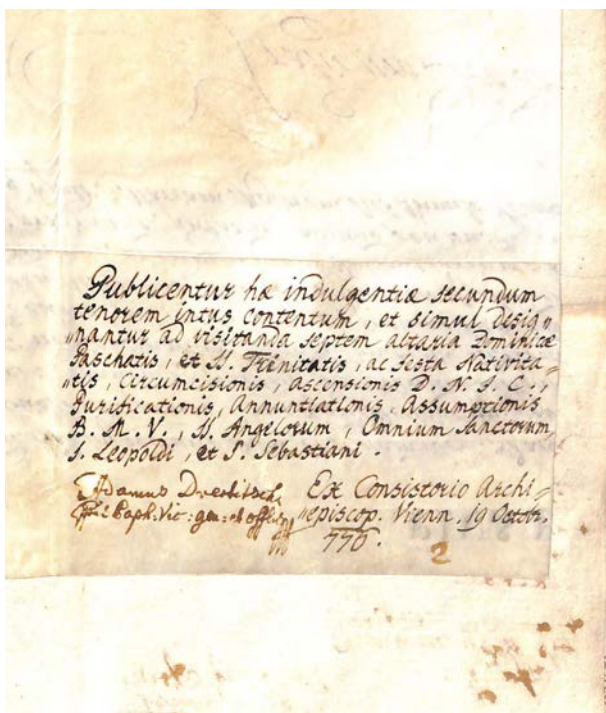 Publicentur hæ indulgentiæ secundum
tenorem intus contentum, et simul desig„
„nantur ad visitanda septem altaria Dominicæ
Paschatis, et SS. Trinitatis, ac festa Nativita„
„tis, Circumcisionis, ascensionis D. N. J. C.,
Purificationis, Annuntiationis, Assumptionis
B. M. V., SS. Angelorum, Omnium Sanctorum,
S. Leopoldi, et S. Sebastiani.
Ex Consistorio Archi„
„episcop. Vienn. 19 Octobr.
Adamus
Vic: gen: et
776.
2